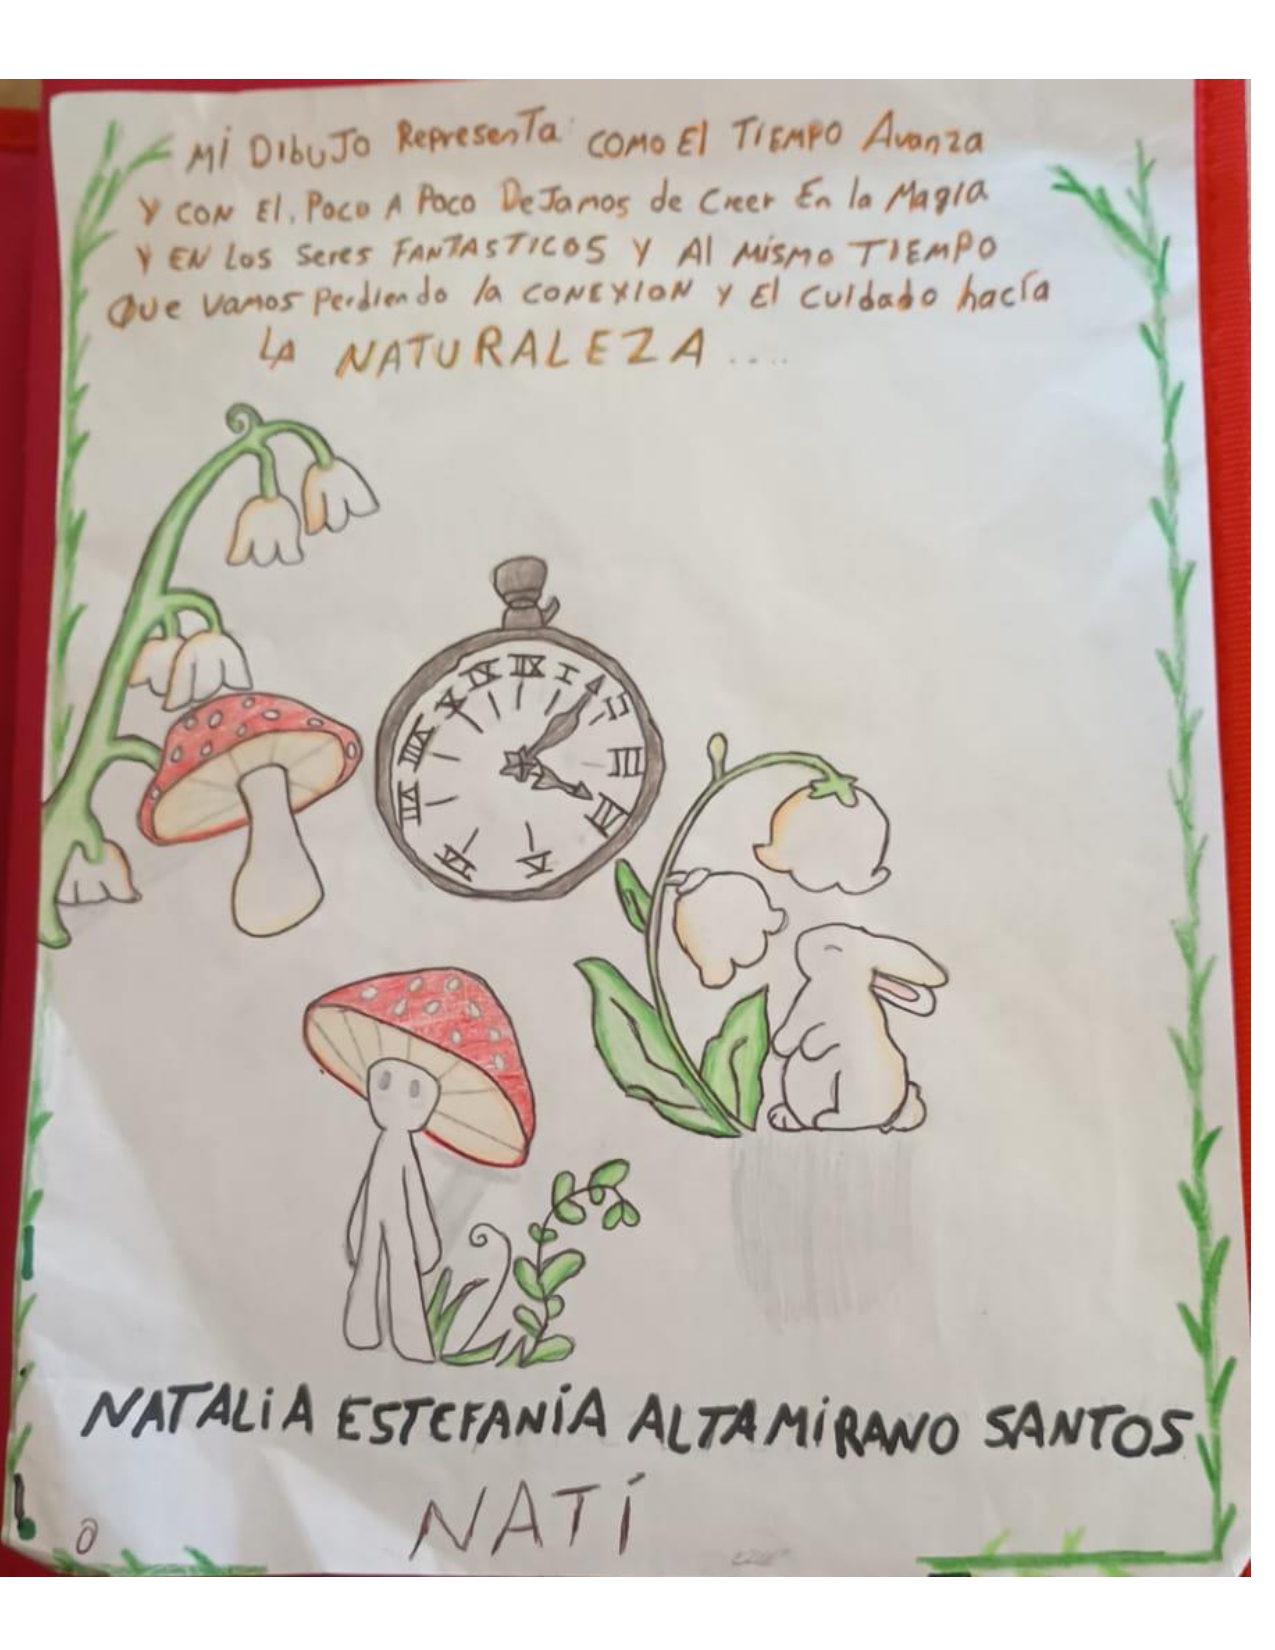 Mi DIbuJo RepresenTa COMO El TIEMPO Avanza
Y CON El, Poco A Poco DeJamos de Creer En la Magia
Y EN Los Seres FANTASTICOS Y Al Mismo TIEMPO
Que Vamos Perdiendo la CONEXION Y El Cuidado hacía
LA NATURALEZA ....
IX IIX I II III IV V VI
NATALiA ESTEFANÍA ALTAMiRANO SANTOS
NATÍ